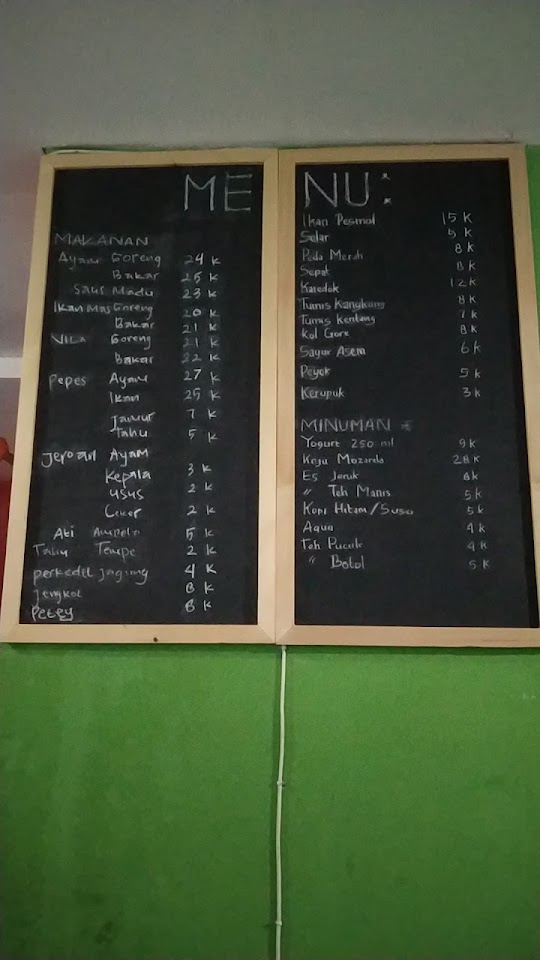 ME NU:
MAKANAN
Ayam Goreng 24 K
Bakar 25 K
Saus Madu 23 K
Ikan Mas Goreng 20 K
Bakar 21 K
NILA Goreng 21 K
Bakar 22 K
Pepes Ayam 27 K
Ikan 25 K
Jamur 7 K
Tahu 5 K
Jeroan Ayam
Kepala 3 K
USUS 2 K
Ceker 2 K
Ati Ampela 5 K
Tahu Tempe 2 K
perkedel jagung 4 K
Jengkol 8 K
Petey 8 K
Ikan Pesmol 15 K
Selar 5 K
Peda Merah 8 K
Sepat 8 K
Karedok 12 K
Tumis Kangkung 8 K
Tumis Kentang 7 K
Kol Gore 8 K
Sayur Asem 6 K
Peyek 5 K
Kerupuk 3 K
MINUMAN =
Yogurt 250 ml 9 K
Keju Mozarela 28 K
ES Jeruk 8 K
" Teh Manis 5 K
Kopi Hitam/Susu 5 K
Aqua 4 K
Teh Pucuk 4 K
" Botol 5 K